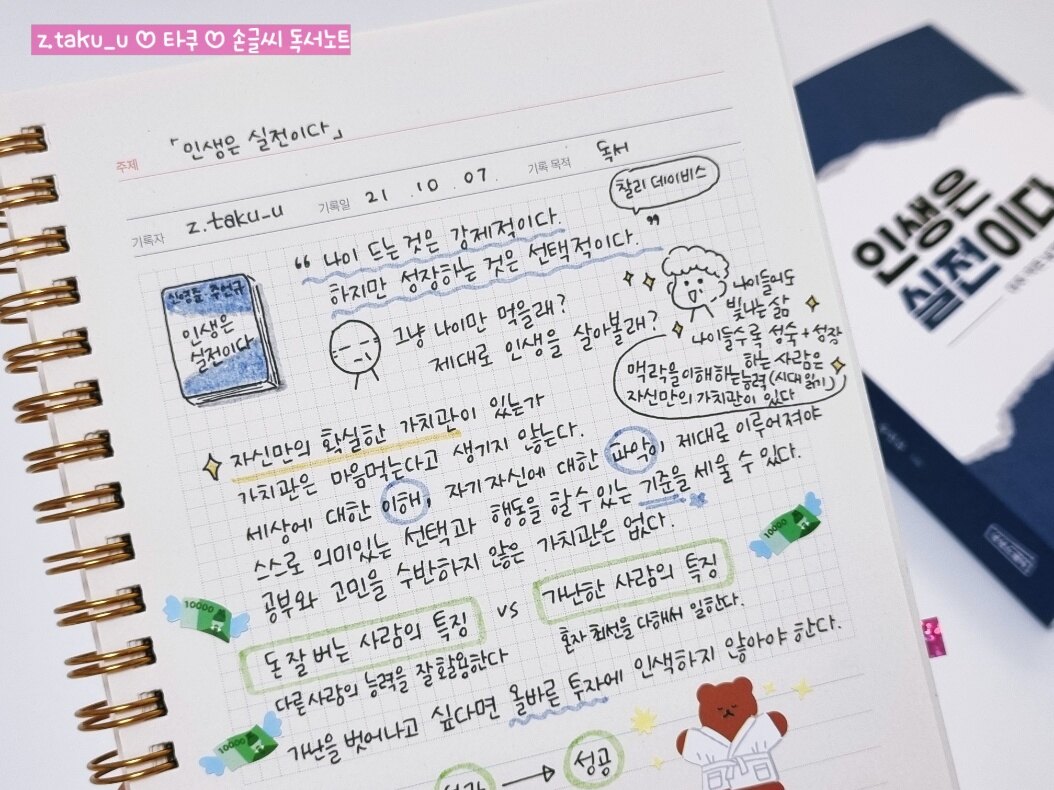 z.taku_u ♡ 타쿠 ♡ 손글씨 독서노트
주제 「인생은 실전이다」
기록자 z.taku_u 기록일 21. 10. 07. 기록 목적 독서
찰리 데이비스
“ 나이 드는 것은 강제적이다.
하지만 성장하는 것은 선택적이다. ”
인생은
실전이다
그냥 나이만 먹을래?
제대로 인생을 살아볼래?
나이들어도
빛나는 삶
나이들수록 성숙+성장
하는 사람은
맥락을 이해하는 능력(시대 읽기)
자신만의 가치관이 있다
자신만의 확실한 가치관이 있는가
가치관은 마음먹는다고 생기지 않는다.
세상에 대한 이해, 자기 자신에 대한 파악이 제대로 이루어져야
스스로 의미있는 선택과 행동을 할 수 있는 기준을 세울 수 있다.
공부와 고민을 수반하지 않은 가치관은 없다.
돈 잘 버는 사람의 특징 vs 가난한 사람의 특징
다른 사람의 능력을 잘 활용한다
혼자 최선을 다해서 일한다.
가난을 벗어나고 싶다면 올바른 투자에 인색하지 않아야 한다.
→ 성공
10000
10000
10000
인생은
실전이다